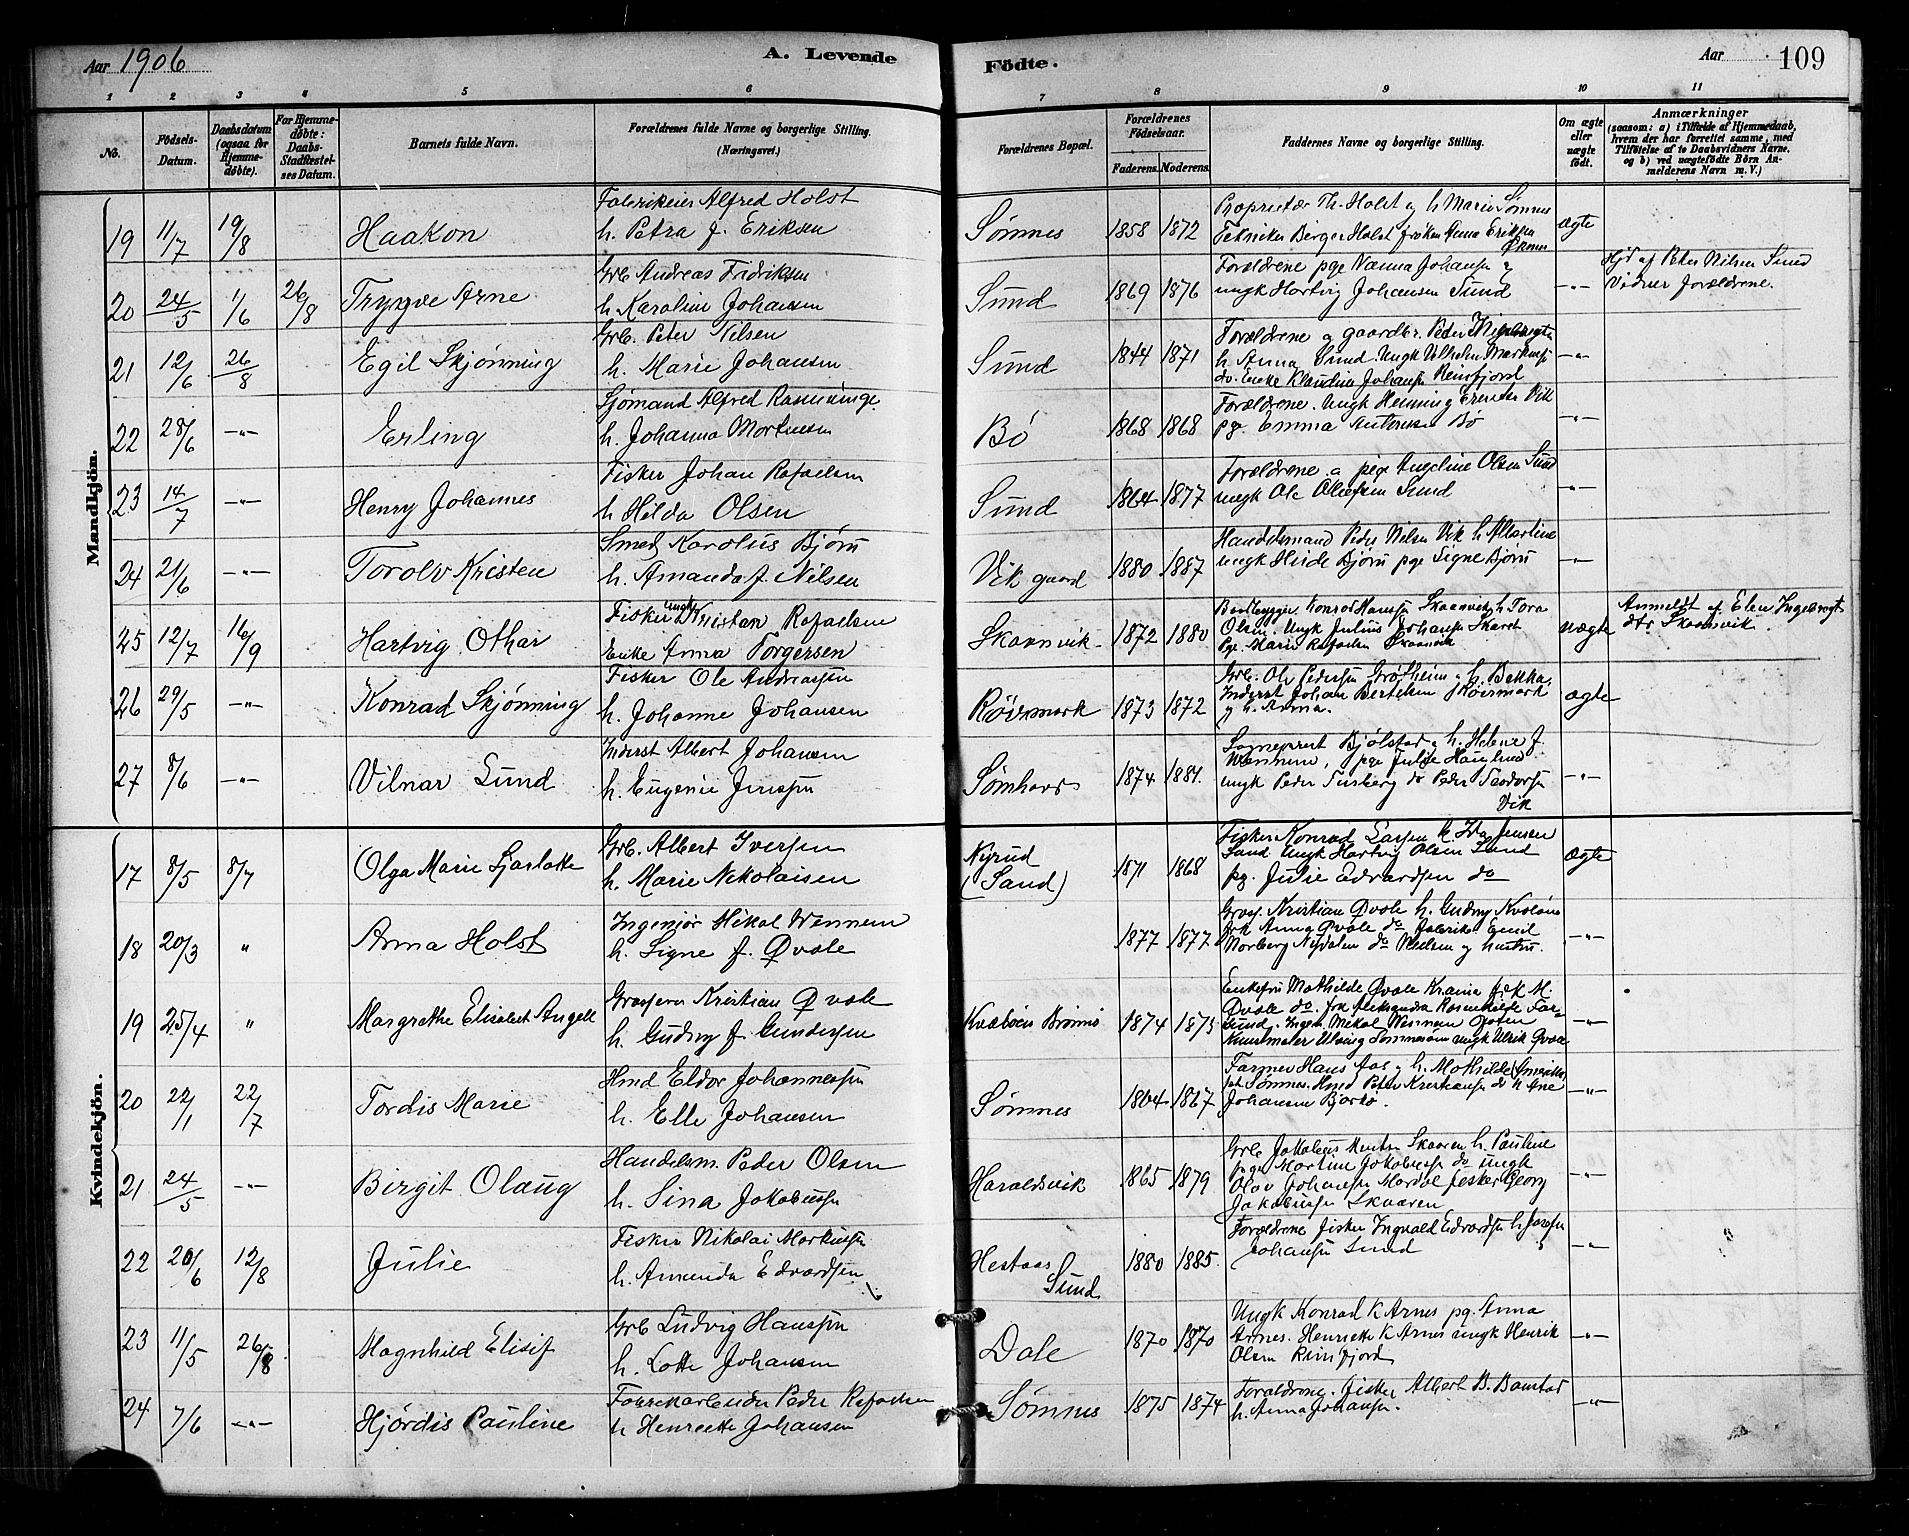 Aar 1906
A. Levende
Födte.
Aar
109
1 2 3 4 5 6 7 8 9 10 11
No.
Födsels-Datum.
Daabsdatum (ogsaa for Hjemmedøbte).
For Hjemmedøbte: Daabs-Stadfæstelses Datum.
Barnets fulde Navn.
Forældrenes fulde Navne og borgerlige Stilling.
(Næringsvei.)
Forældrenes Bopæl.
Forældrenes Födselsaar.
Faderens. Moderens.
Faddernes Navne og borgerlige Stilling.
Om ægte eller uægte født.
Anmærkninger
(saasom: a) i Tilfælde af Hjemmedaab, hvem der har forrettet samme, med Tilföielse af to Daabsvidners Navne, og b) ved uægtefödte Börn Anmelderens Navn m. V.)
Mandkjön.
19 11/7 19/8 Haakon
Fabrikeier Alfred Holst
h. Petra f. Eriksen
Sømnes 1858 1872
Proprietær Th. Holst og h. Marie Sømnes
Tekniker Birger Holst frøken Anna Eriksen
ægte
20 24/5 1/6 26/8 Trygve Arne
Grb. Andreas Fridriksen
h. Karoline Johansen
Sund 1869 1876
Forældrene pge Nanna Johansen og
ungk Hartvig Johansen Sund
-"-
Hjd af Peter Nilsen Sund
Vidner forældrene.
21 12/6 26/8 Egil Skjønning
Grb. Peter Nilsen
h. Marie Johansen
Sund 1844 1871
Forældrene og gaardbr. Peder
h. Anna Sund. Ungk Vilhelm Markusen
do. Enke Klaudine Johansen Reinsfjord
-"-
22 28/6 -"- Erling
Sjømand Alfred
h. Johanna Mortensen
Bø 1868 1868
Forældrene. Ungk Henning Vik
pge. Emma Bø
-"-
23 14/7 -"- Henry Johannes
Fisker Johan Rafaelsen
h Hilda Olsen
Sund 1864 1877
Forældrene og pige Angeline Olsen Sund
ungk Ole Olufsen Sund
-"-
24 21/6 -"- Torolv Kristen
Smed Karolus Bjørn
h. Amanda f. Nilsen
Vik gaard 1880 1887
Handelsmand Peder Nilsen Vik h Albertine
ungk Bjørn pge Signe Bjørn
-"-
25 12/7 16/9 Hartvig Othar
Fisker ungk Kristian Rafaelsen
Enke Anna Torgersen
Skaanvik 1872 1880
Baadbygger Konrad Hansen Skaanvik h. Tora
Olsen. Ungk Julius Johansen Skaret
Pge. Marie Rafaelsen Skaanvik
uægte
Anmeldt af Elen Ingebrigts
dtr Skaanvik.
26 29/5 -"- Konrad Skjønning
Fisker Ole Andreassen
h. Johanne Johansen
Røvsmark 1873 1872
Grb. Ole Pedersen Grøtheim og h. Bekka.
Inderst Johan Bertelsen Røvsmark
og h. Anna.
ægte
27 8/6 -"- Vilnar Sund
Inderst Albert Johansen
h. Eugenie Jensen
Sømhovd 1874 1881.
Sogneprest Bjølstad og h. Helene f.
Wennem, pge Julie Haugland
ungk Peder Tusberg do Peder Teodorsen
Vik
-"-
Kvindekjön.
17 8/5 8/7 Olga Marie Sjarlotte
Grb. Albert Iversen
h. Marie Nikolaisen
Nyrud
(Sand) 1871 1868
Fisker Konrad Larsen h Ida Jensen
Sand Ungk Hartvig Olsen Sund
pg. Julie Edvardsen do
ægte
18 20/3 " Anna Holst
Ingeniør Mikal Wennem
h. Signe f. Qvale
1877 1877
Gross. Kristian Qvale h. Gudny Kvaløen
frk Anna Qvale do fabrikc Emil
Norberg Nydalen do Nielsen og hustru.
-"-
19 25/4 " Margrethe Elisabet Angell
Grosserer Kristian Qvale
h. Gudny f. Gundersen
Kvaløen Brønnø 1874 1875
Enkefru Mathilde Qvale Krania frk M.
Qvale do. frk Aleksandra Rosenkilde Far-
sund. Ingen. Mikal Wennem
Kunstmaler ungk Ulrik Qvale
-"-
20 22/1 22/7 Tordis Marie
Hmd Eldor Johannessen
h. Elle Johansen
Sømnes 1864 1867
Farmer Hans Aas og h. Mathilde (Amerika)
Sømnes. Hmd Peter Kristiansen do h Ane
Johansen Bjorkø.
-"-
21 24/5 -"- Birgit Olaug
Handelsm. Peder Olsen
h. Sina Jakobsen
Haraldsvik 1865 1879
Grb Jakobæus Skaaren h. Pauline
pge Martine Jakobsen do ungk
Olav Johansen Mardal fisker Georg
Jakobsen Skaaren.
-"-
22 20/6 12/8 Julie
Fisker Nikolai Markussen
h. Amanda Edvardsen
Hestaas
Sund 1880 1885.
Forældrene fisker Ingvald Edvardsen h Josefa
Johansen Sund
-"-
23 11/5 26/8 Magnhild Elisif
Grb Ludvig Hanssen
h. Lotte Johansen
Dale 1870 1870
Ungk Konrad K Arnes pg. Anna
Arnes. Henriette K Arnes ungk Henrik
Olsen Reinsfjord
-"-
24 7/6 -"- Hjördis Pauline
Peder Rafaelsen
h Henriette Johansen
Sømnes 1875 1874
Forældrene. fisker Albert B. Baustad
h. Anna Johansen.
-"-